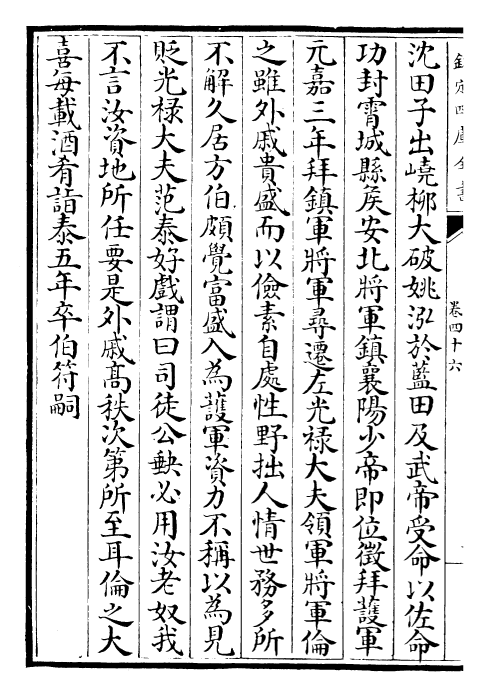 欽定四庫全書
卷四十六
沈田子出嶢柳大破姚泓於藍田及武帝受命以佐命
功封霄城縣矦安北將軍鎮襄陽少帝即位徵拜護軍
元嘉三年拜鎮軍將軍尋遷左光禄大夫領軍將軍倫
之雖外戚貴盛而以儉素自處性野拙人情世務多所
不解久居方伯頗覺富盛入為護軍資力不稱以為見
貶光禄大夫范泰好戲謂曰司徒公缺必用汝老奴我
不言汝資地所任要是外戚髙秩次第所至耳倫之大
喜每載酒肴詣泰五年卒伯符嗣